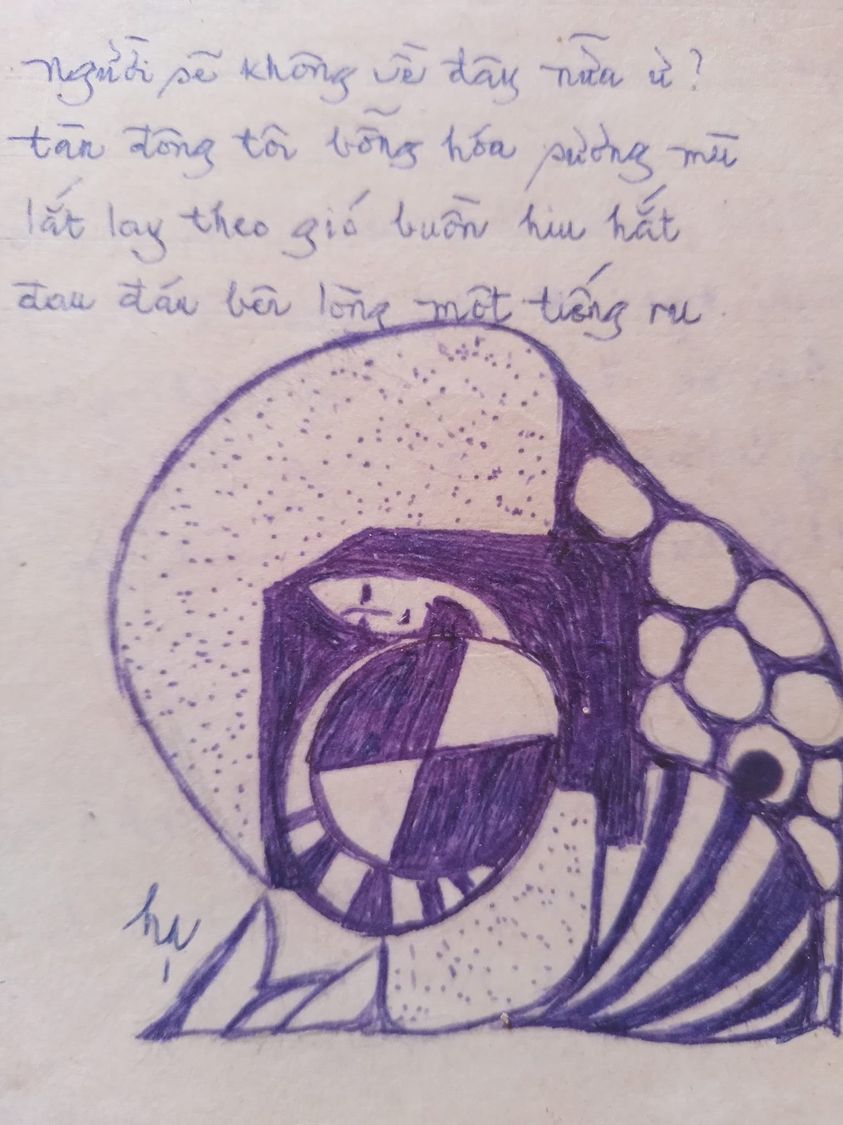 người sẽ không về đây nữa ư?
tàn đông tôi bỗng hóa sương mù
lắt lay theo gió buồn hiu hắt
đau đáu bên lòng một tiếng ru